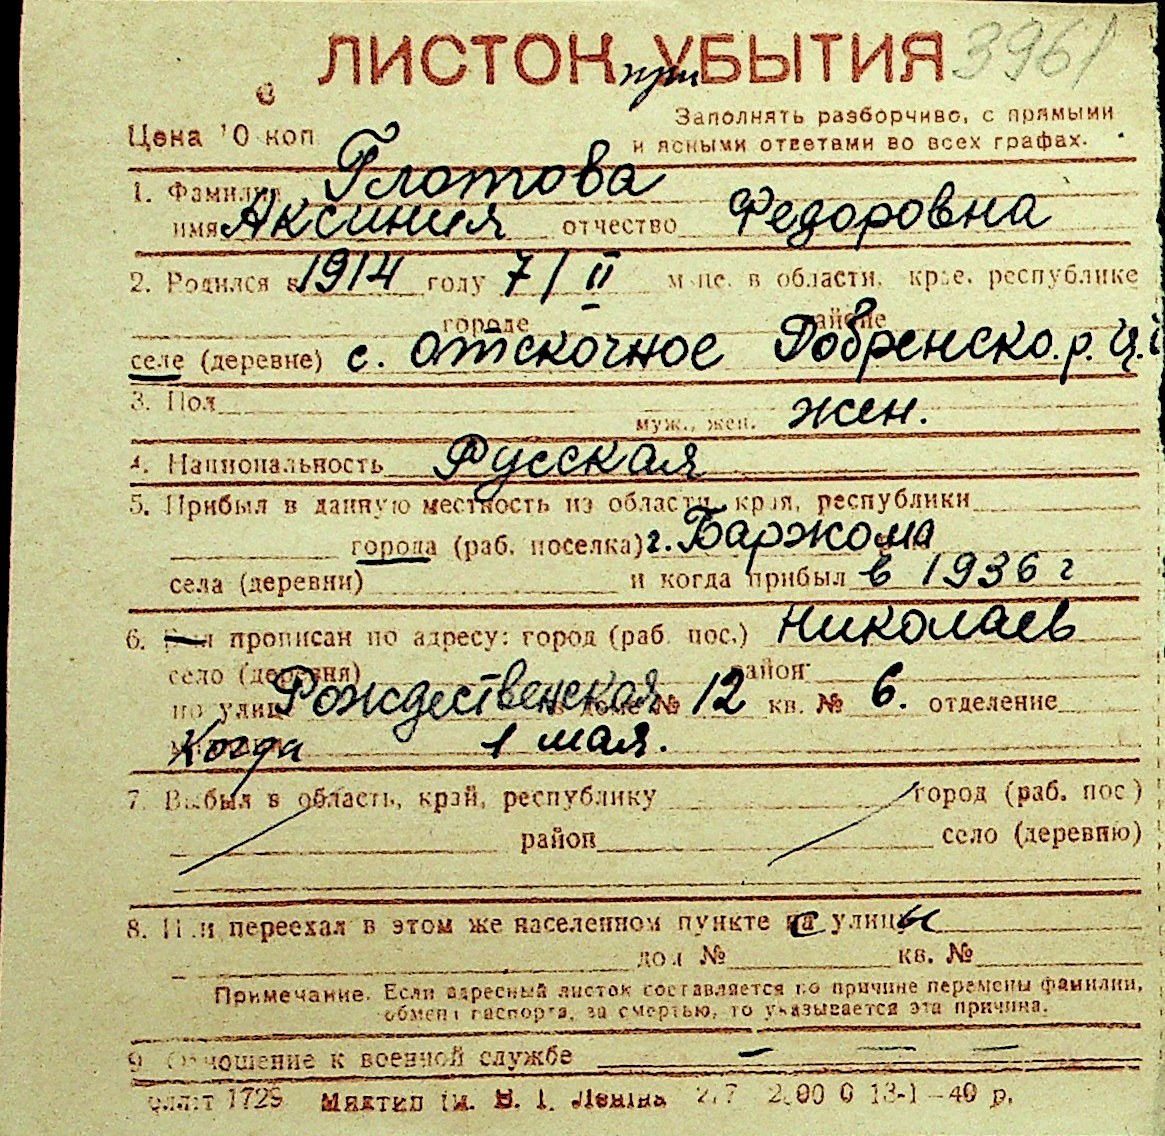 ЛИСТОК УБЫТИЯ 3961
при
Цена 10 коп
Заполнять разборчиво, с прямыми
и ясными ответами во всех графах.
1. Фамилия Глотова
имя Аксиния отчество Федоровна
2. Родился в 1914 году 7/II м-це. в области, крае, республике
городе районе
селе (деревне) с. Отскочное Добренско.р.
3. Пол
муж., жен. жен.
4. Национальность Русская
5. Прибыл в данную местность из области, края, республики
города (раб. поселка) г. Баржома
села (деревни) и когда прибыл в 1936 г
6. прописан по адресу: город (раб. пос.) Николаев
село (деревня) район
по улице Рождественская в доме № 12 кв. № 6. отделение
Когда 1 мая.
7. Выбыл в область, край, республику город (раб. пос)
район село (деревню)
8. Или переехал в этом же населенном пункте с улицы
дом № кв. №
Примечание. Если адресный листок составляется по причине перемены фамилии,
обмена паспорта, за смертью, то указывается эта причина.
9. Отношение к военной службе — — —
1729 Миктип Ім. В. І. Леніна 13-1-40 р.